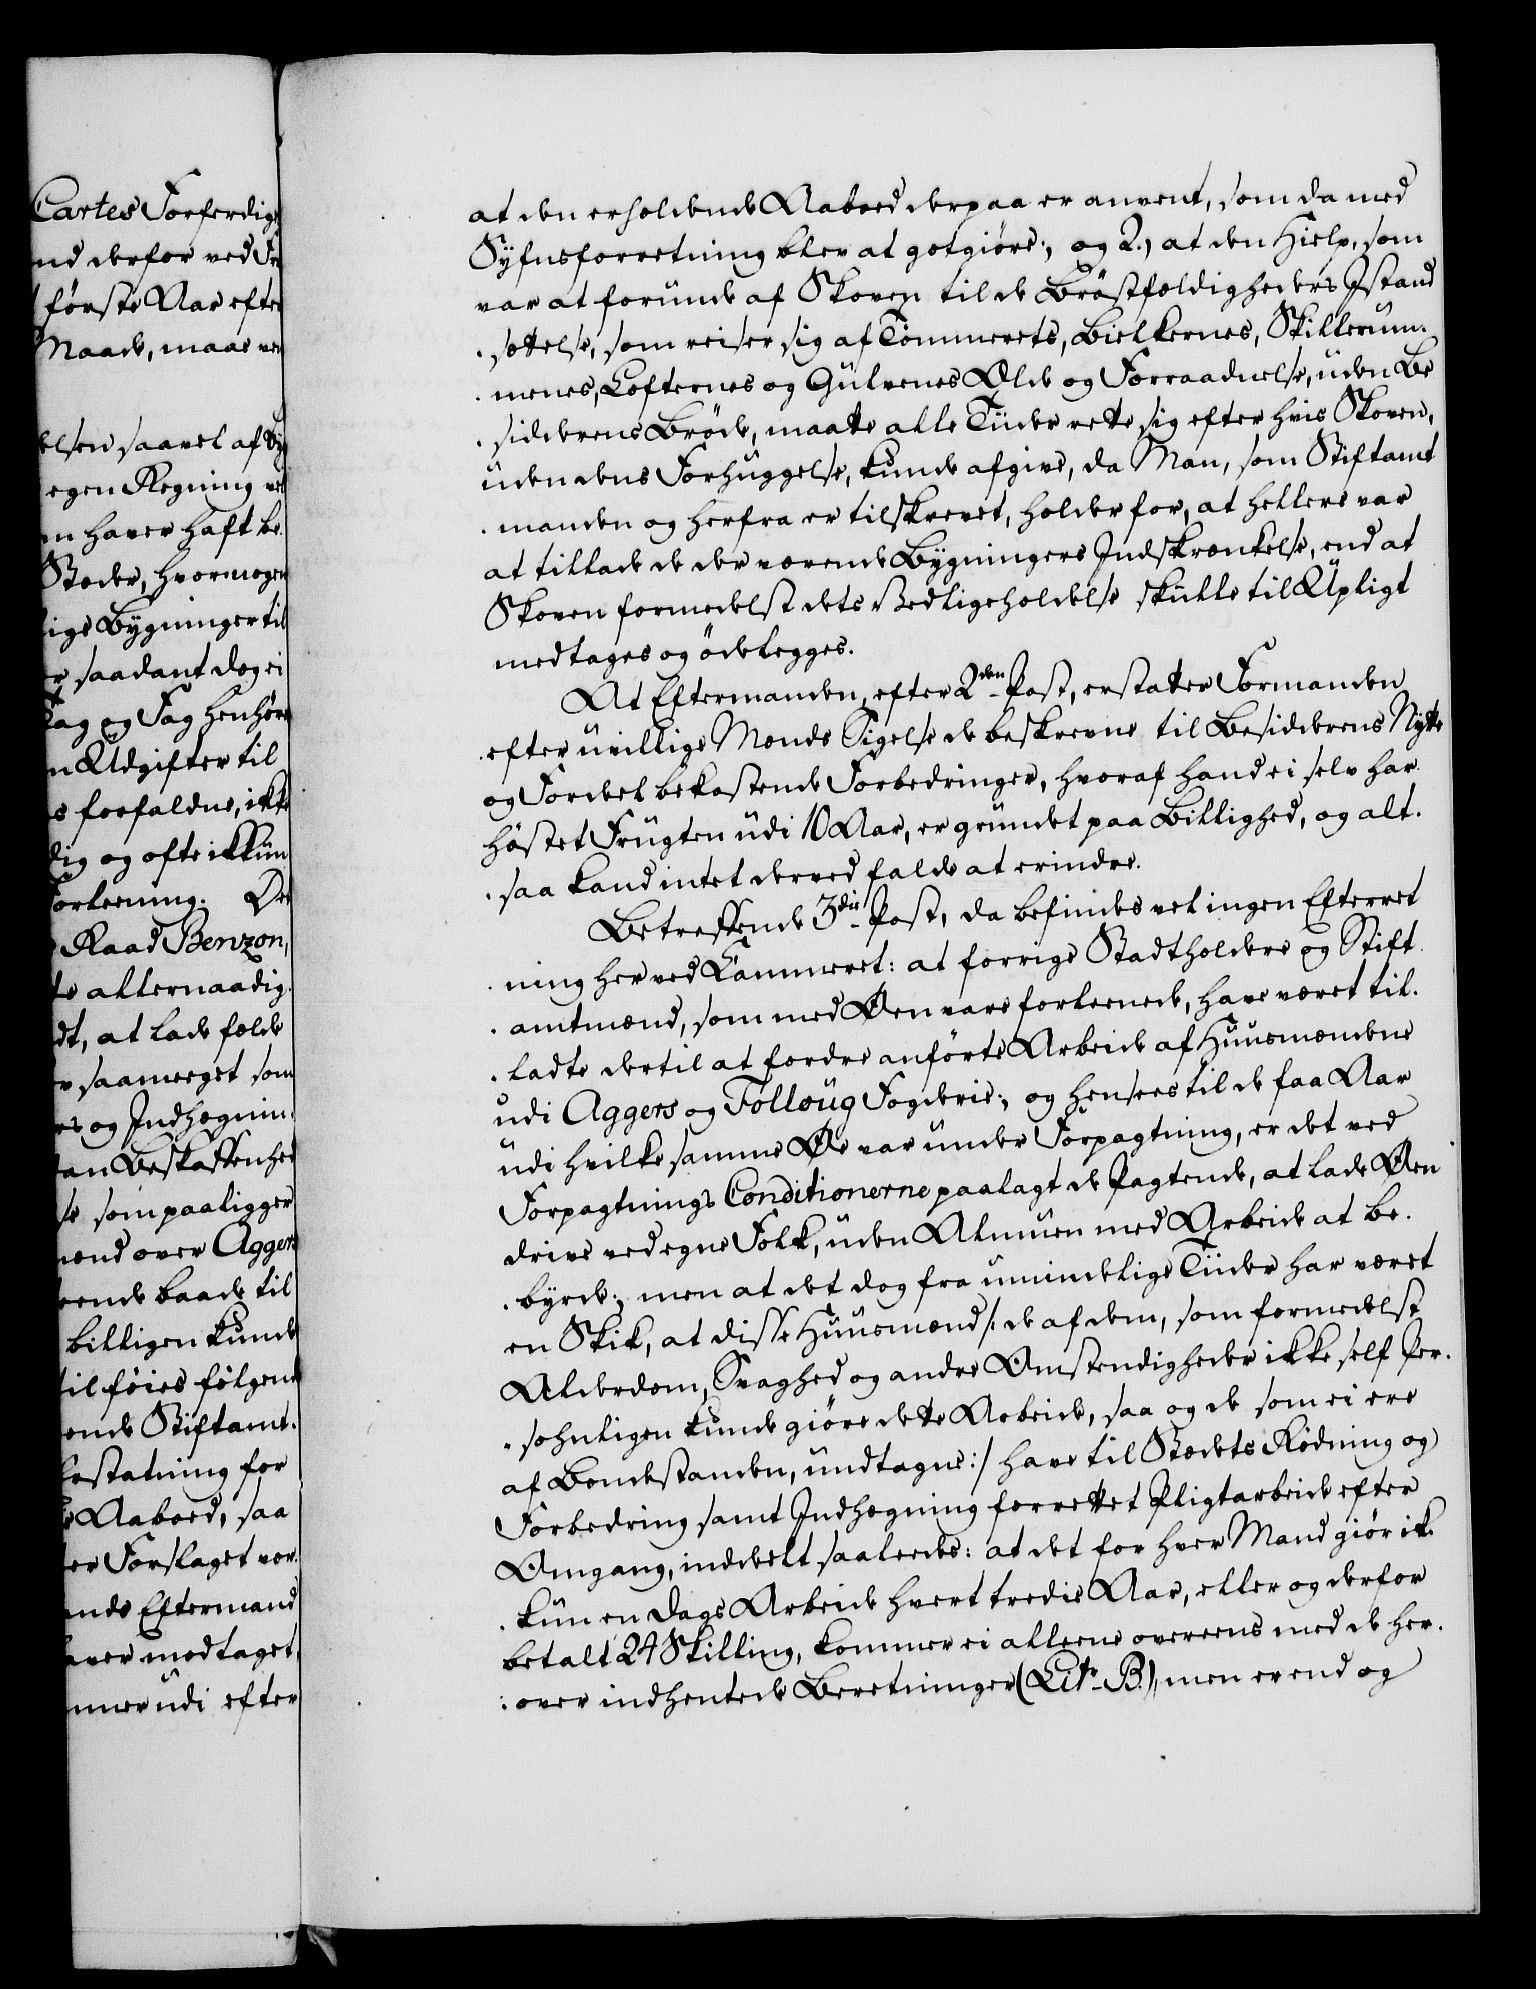 Cartes Forferdig
nd derfor ved Fr
første Aar efter
Maade, maae ve
elsen saavel af
egen Regning ve
n haver haft be
Stæder, hvormogen
ige Bygninger til
r saadant dog ei
ag og Fag henhøre
n Udgifter til
s forfaldne, ikke
dig og ofte ikkun
orleening. De
Raad Benzon,
te allernaadig
dt, at lade fælde
r saameget som
es og Indhægnin
an Beskaffenhed
se som paaligger
mænd over Aggers
eende baade til
billigen kunde
tilføies følgend
ende Stiftamt
erstatning for
Aaboed, saa
er Forslaget vor
ands Eftermand
aver modtaget,
mmer udi efter
at den erholdende Aaboed derpaa er anvent, som da med
Syfnsforretning blev at gotgiøre;, og 2., at den Hielp, som
var at forunde af Skoven til de Brøstfældigheders Istand
sættelse, som reiser sig af Tømmerets, Bielkernes, Skillerum
menes, Lofternes og Gulvenes Ælde og Forraadnelse, uden Be
sidderens Brøde, maatte alle Tiider rette sig efter hvis Skoven,
uden dens Forhuggelse, kunde afgive, da Man, som Stiftamt
manden og herfra er tilskrevet, holder for, at hellere var
at tillade de der værende Bygningers Indskrænkelse, end at
Skoven formedelst dets Vedligeholdelse skulle til Upligt
medtages og ødelegges.
At Eftermanden, efter 2den Post, erstatter Formanden
efter uvillige Mænds Sigelse de beskrevne til Besidderens Nytte
og Fordeel bekostende Forbedringer, hvoraf hand ei selv har
høstet Frugten udi 10 Aar, er grundet paa Billighed, og alt.
saa kand intet derved falde at erindre.
Betreffende 3die Post, da befindes vel ingen Efterret
ning her ved Kammeret: at forrige Stadtholdere og Stift
amtmænd, som med Øen vare forleenede, have været til.
ladte dertil at fordre anførte Arbeide af Huusmændene
udi Aggers og Følloug Fogderie;, og hensees til de faa Aar
udi hvilke samme Øe var under Forpagtning, er det ved
Forpagtnings Conditionerne paalagt de Pagtende, at lade Øen
drive ved egne Folk, uden Almuen med Arbeide at be.
byrde;, men at det dog fra umindelige Tiider har været
en Skik, at disse Huusmænd /: de af dem, som formedelst
Alderdom, Svaghed og andre Omstendigheder ikke self Per.
sohnligen kunde giøre dette Arbeide, saa og de som ei ere
af Bondestanden, undtagne :/ have til Stædets Rødning og
Forbedring samt Indhægning forrettet Pligtarbeide efter
Omgang, inddeelt saaleedes: at det for hver Mand giør ik.
kun en Dags Arbeide hvert tredie Aar, eller og derfor
betalt 24 Skilling, kommer ei alleene overeens med de her.
over indhentede Beretninger (Litr. B.), men er end og